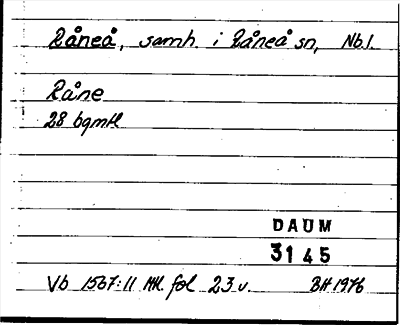 Råneå, samh. i Råneå sn, Nb.l.
Råne
28 bqmtl
DAUM
3145
Vb 1567:11 Ml. fol 23 v. BH 1976